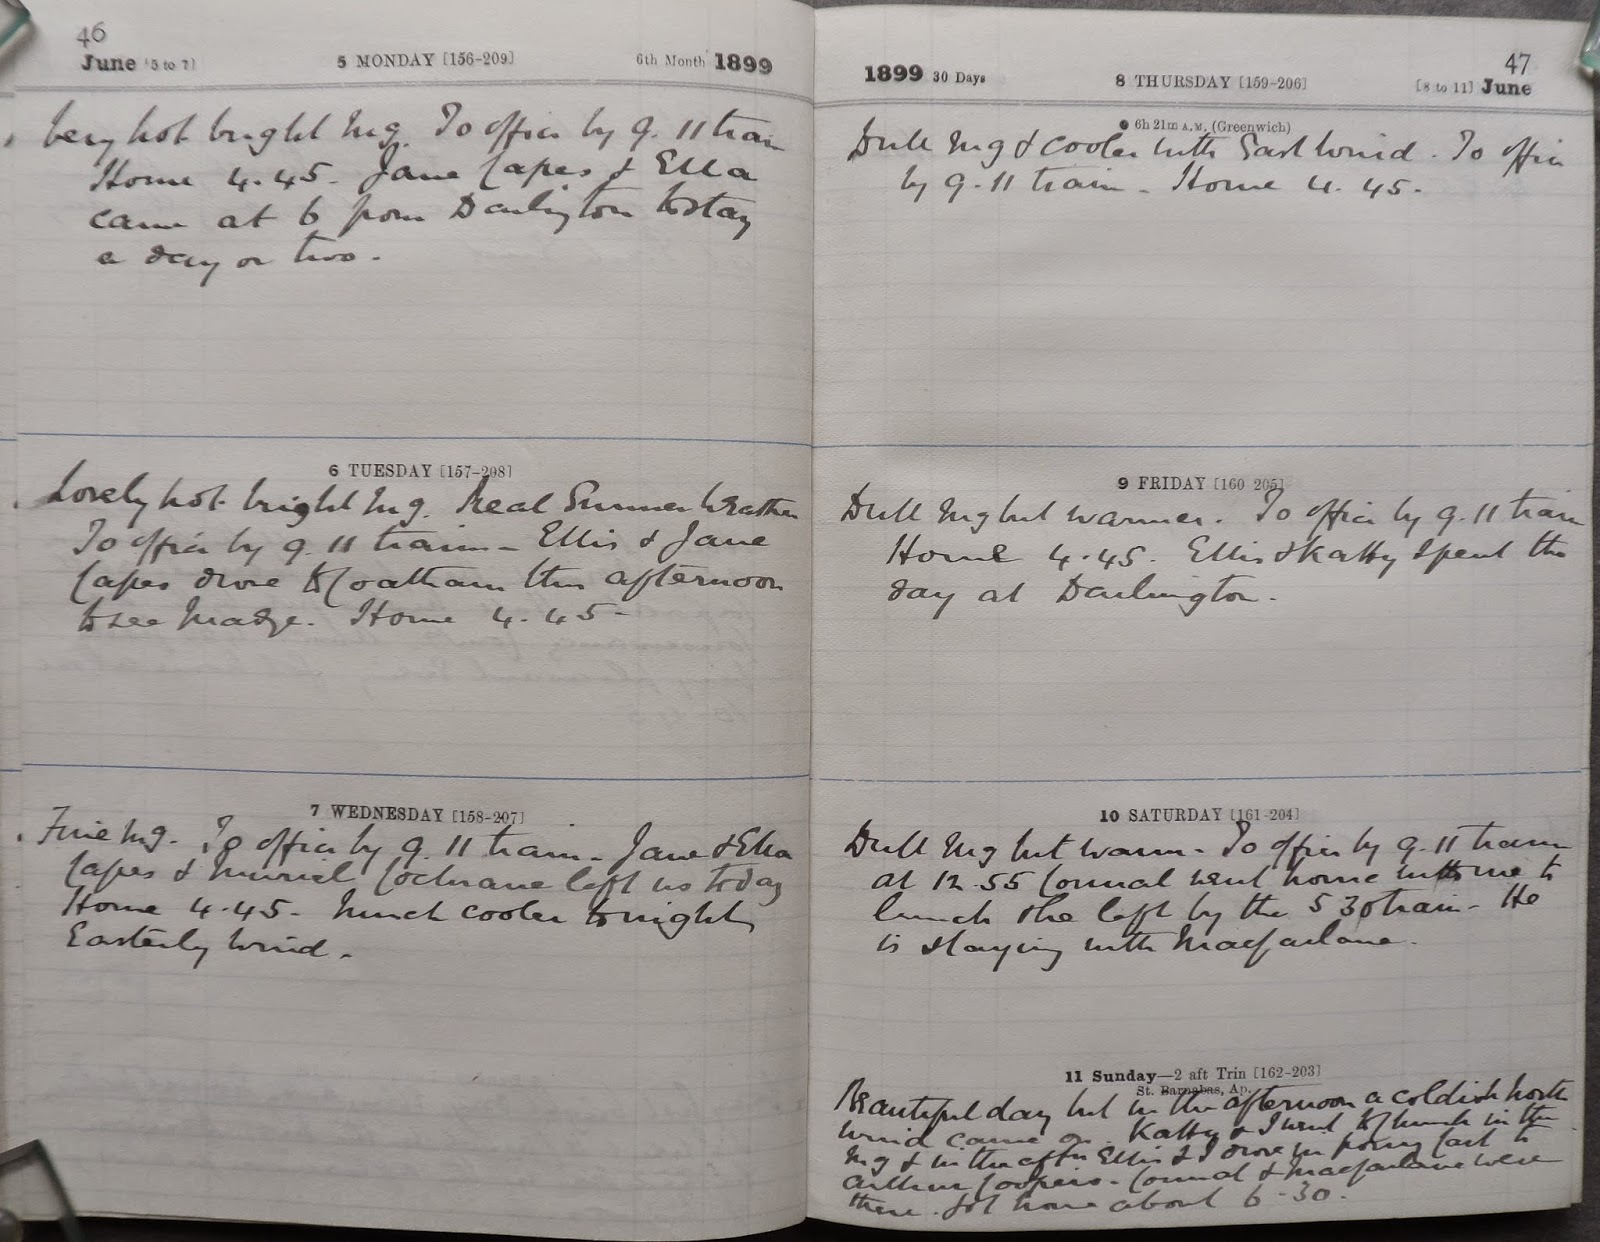 46
June [5 to 7] 5 MONDAY [156-209] 6th Month 1899
Very hot bright Mg. To office by 9.11 train
Home 4.45. Jane Capes & Ella
came at 6 from Darlington to stay
a day or two.
6 TUESDAY [157-208]
Lovely hot bright Mg. Real Summer Weather
To office by 9.11 train - Ellis & Jane
Capes drove to Coatham this afternoon
to see Madge. Home 4.45 -
7 WEDNESDAY [158-207]
Fine Mg. To office by 9.11 train - Jane & Ella
Capes & Muriel Cochrane left us today
Home 4.45 - Much cooler tonight
Easterly Wind.
47
1899 30 Days 8 THURSDAY [159-206] [8 to 11] June
● 6h 21m A.M. (Greenwich)
Dull Mg & cooler with East Wind. To office
by 9.11 train - Home 4.45.
9 FRIDAY [160 205]
Dull Mg but warmer. To office by 9.11 train
Home 4.45. Ellis & Katty spent the
day at Darlington.
10 SATURDAY [161-204]
Dull Mg but warm - To office by 9.11 train
at 12.55 Connal went home with me to
lunch & he left by the 5 30 train - He
is staying with Macfarlane.
11 Sunday—2 aft Trin [162-203]
St. Barnabas, Ap.
Beautiful day but in the afternoon a coldish North
wind came on. Katty & I went to Church in the
Mg & in the aftn Ellis & I drove in pony cart to
Arthur Coopers - Connal & Macfarlane were
there. Got home about 6-30.